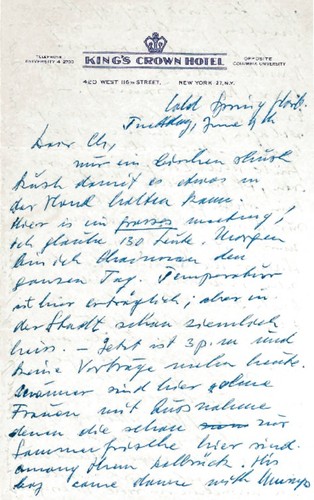 TELEPHONE
UNIVERSITY 4-2700
KING'S CROWN HOTEL
OPPOSITE
COLUMBIA UNIVERSITY
420 WEST 116TH STREET, NEW YORK 27, N.Y.
Cold Spring Harb.
Tuesday, June
Dear
nur ein
damit es etwas in
der Hand halten kann.
Hier is ein grosses meeting;
ich glaube 130 Leute. Morgen
bin ich Chairman den
ganzen Tag. Temperatur
ist hier erträglich; aber in
der Stadt schon ziemlich
heiss. – Jetzt ist 3 p.m. und
keine Vorträge mehr heute.
Männer sind hier ohne
Frauen mit Ausnahme
denen die schon zur
Sommerfrische hier sind
among them Delbrück. His
boy came down with